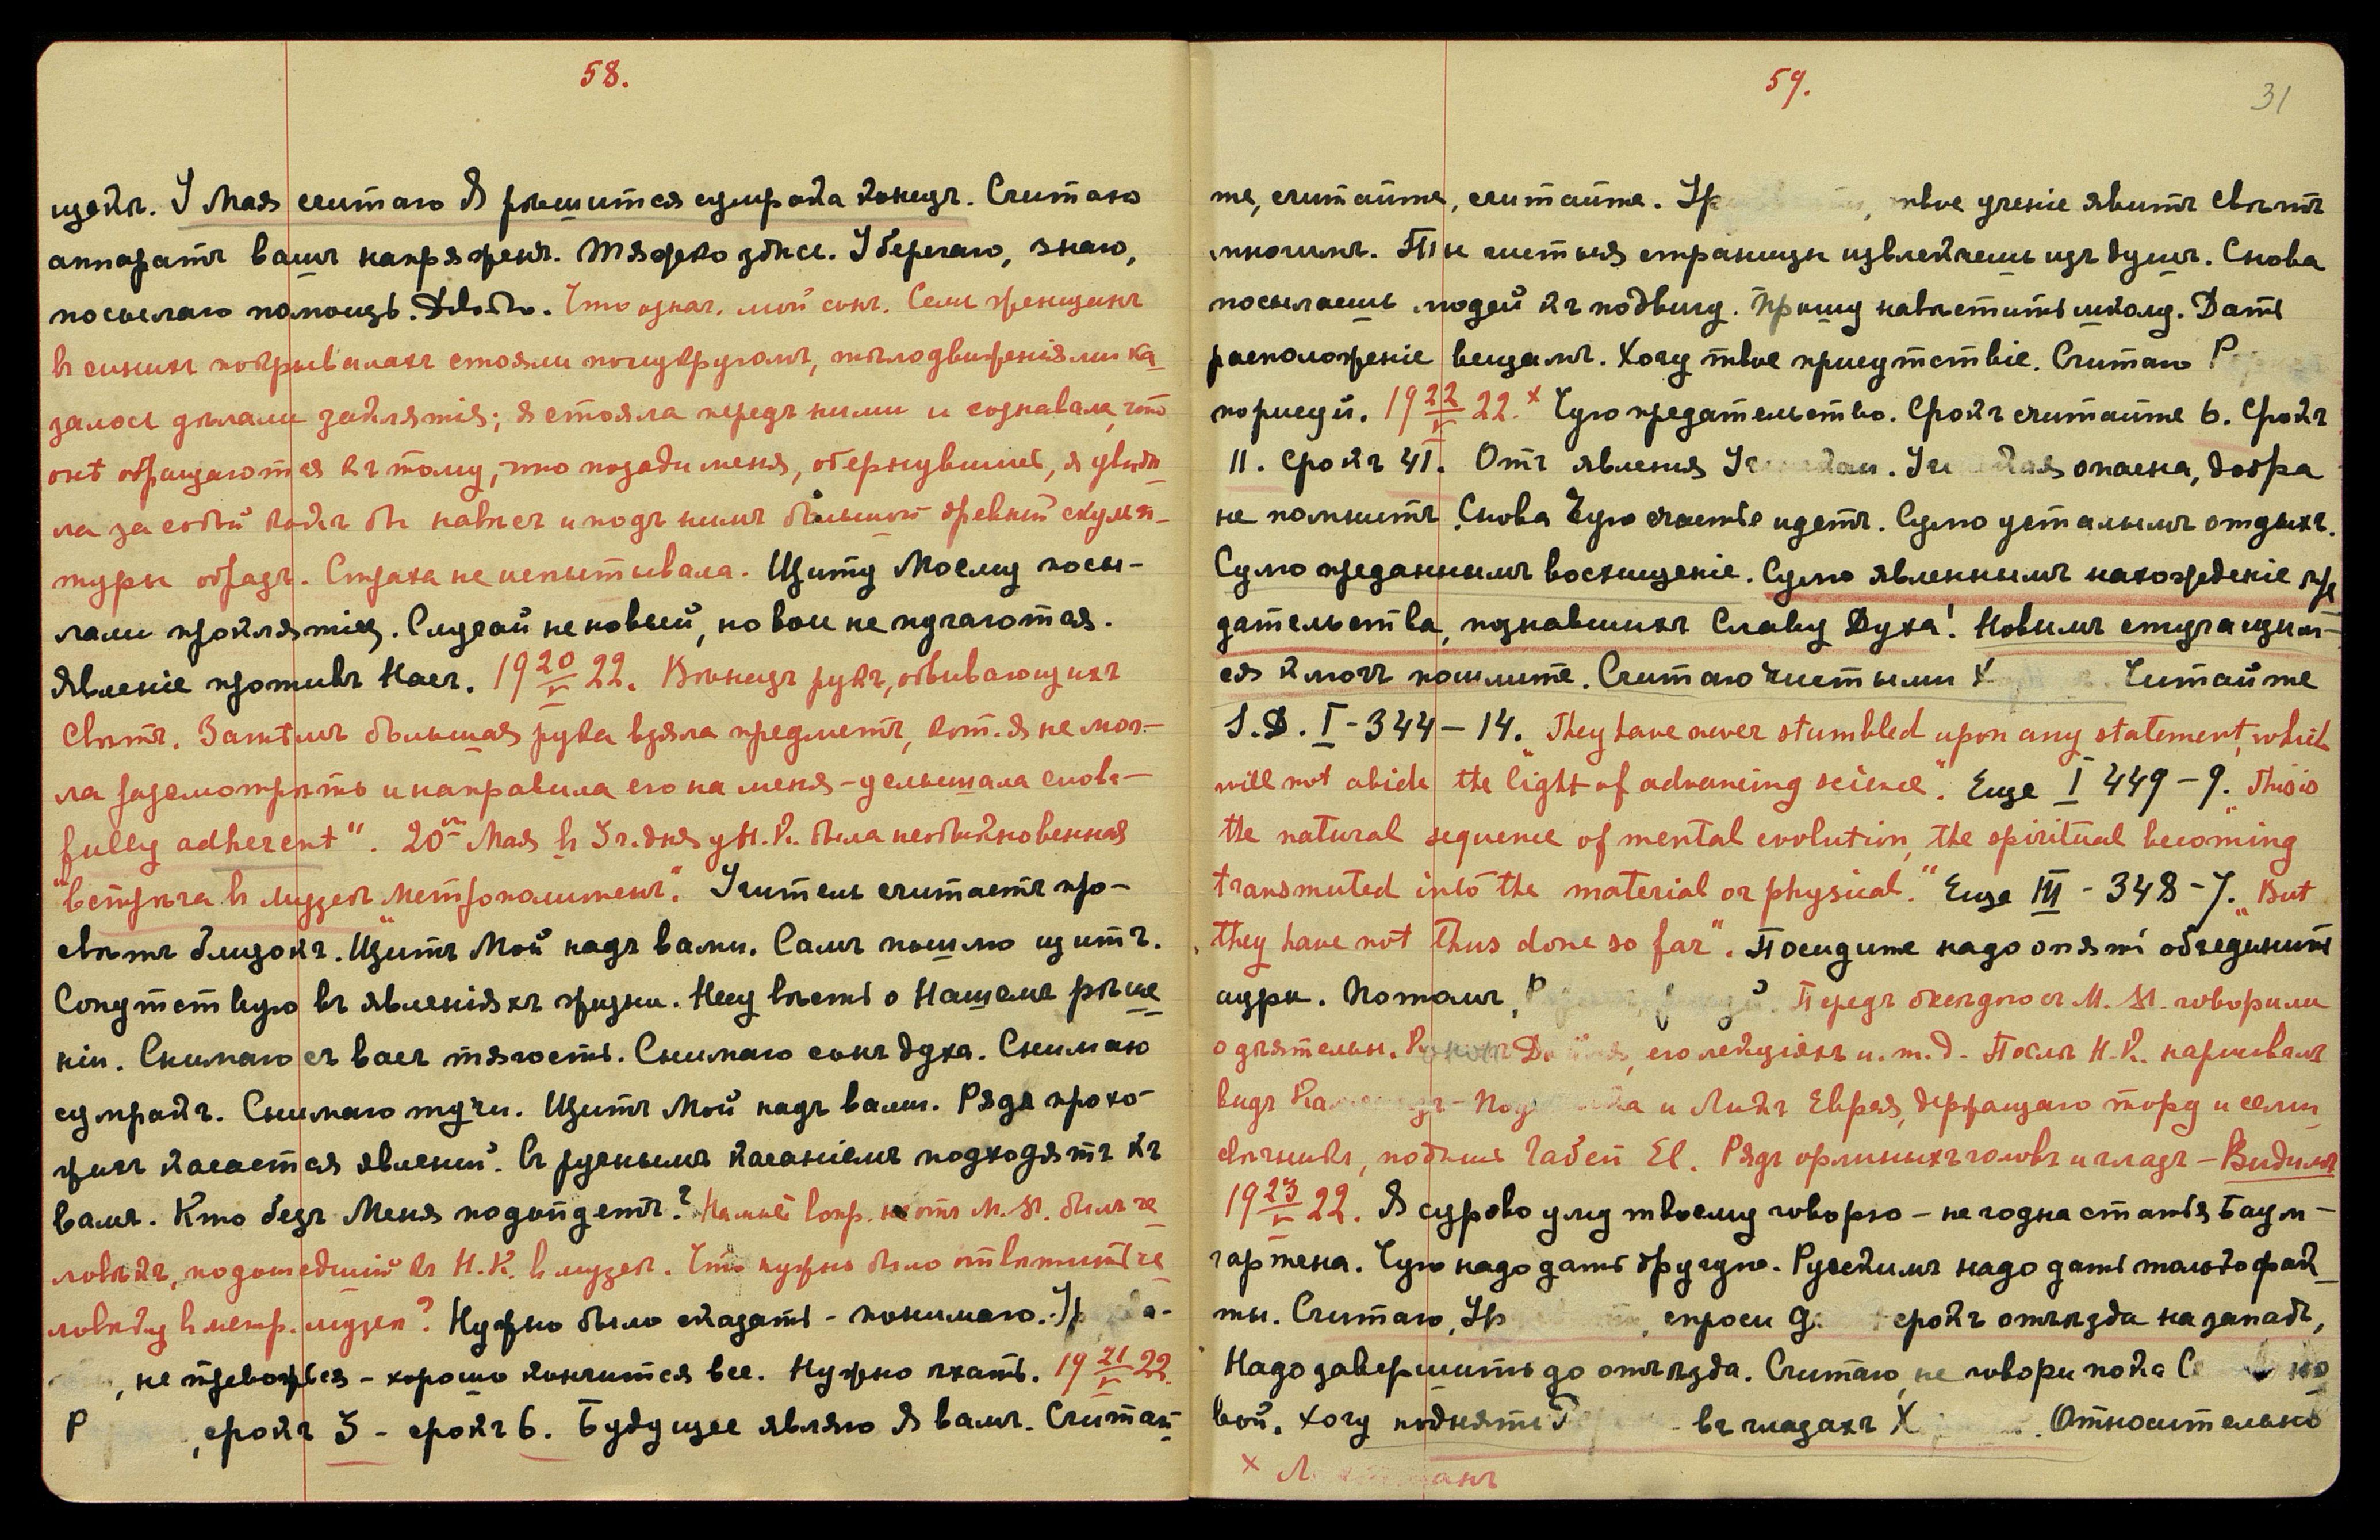 58.
щекъ. У Мая считаю Я рѣшится сумрака конецъ. Считаю
аппаратъ вашъ напряженъ. Тяжко здѣсь. Уберегаю, знаю,
посылаю помощь. Что означ. мой сонъ. Семь женщинъ
въ синихъ покрывалахъ стояли полукругомъ, тѣлодвиженіями ка
залось дѣлали заклятія; я стояла передъ ними и сознавала, что
онѣ обращаются къ тому, что позади меня, обернувшись, я увидѣ
ла за собой какъ бы навѣсъ и подъ нимъ большой древній скульп-
туры образъ. Страха не испытывала. Щиту Моему посы-
лали проклятія. Случай не новый, но вои не пугаются.
Явленіе противъ Насъ. 19 20/V 22. Вѣнецъ рукъ, обвивающихъ
Свѣтъ. Затѣмъ большая рука взяла предметъ, кот. я не мог-
ла разсмотрѣть и направила его на меня - услышала слова -
fully adherent". 20го Мая въ 3 ч. дня у Н.К. была необыкновенная
"встрѣча въ музеѣ Метрополитенъ". Учитель считаетъ про-
свѣтъ близокъ. Щитъ Мой надъ вами. Самъ пошлю щитъ.
Сопутствую въ явленіяхъ жизни. Несу вѣсть о Нашемъ рѣше
ніи. Снимаю съ васъ тягость. Снимаю сонъ духа. Снимаю
сумракъ. Снимаю тучи. Щитъ Мой надъ вами. Рядъ прохо-
жихъ касается явленій. Съ руннымъ касаніемъ подходятъ къ
вамъ. Кто безъ Меня подойдетъ? На мысл вопр. не отъ М. М. былъ че
ловѣкъ, подошедшій къ Н.К. въ музеѣ. Что нужно было отвѣтить че
ловѣку въ метр. музеѣ? Нужно было сказать - понимаю.
, не тревожься - хорошо кончится все. Нужно ѣхать. 19 21/V 22.
Р , срокъ 3 - срокъ 6. Будущее являю Я вамъ. Считай
59.
31
те, считайте, считайте. Ур , твое ученіе явитъ свѣтъ
многимъ. Ты чистыя страницы извлекаешь изъ душъ. Снова
посылаешь людей къ подвигу. Прошу навѣстить школу. Дать
расположеніе вещамъ. Хочу твое присутствіе. Считаю Р
порисуй. 19 22/V 22.x Чую предательство. Срокъ считайте 6. Срокъ
11. Срокъ 41. Отъ явленія . опасна, добра
не помнитъ. Снова Чую счастье идетъ. Сулю усталымъ отдыхъ.
Сулю преданнымъ восхищеніе. Сулю явленнымъ нахожденіе пре
дательства, познавшихъ Славу Духа! Новымъ стучащим-
ся ключъ пошлите. Считаю чистыми Х . Читайте
S.D. I - 344 - 14. "They have never stumbled upon any statement, which
will not abide the light of advancing science". Еще I 449 - 9. "This is
the natural sequence of mental evolution, the spiritual becoming
transmuted into the material or physical." Еще III - 348 - 7. "But
they have not thus done so far". Посидите надо опять объединить
ауры. Потомъ, . Передъ бесѣдою съ М. М. говорили
о дѣятельн. , его лекціяхъ и. т. д. Послѣ Н.К. нарисовалъ
видъ и Ликъ Еврея, держащаго тору и семи
свѣчникъ, Габей El. Рядъ орлиныхъ головъ и гладъ - Видимъ
19 23/V 22. Я сурово уму твоему говорю - не годна статья Баум-
гартена. Чую надо дать другую. Русскимъ надо дать только фак
ты. Считаю, Ур , спроси срокъ отъѣзда на западъ,
Надо завершить до отъѣзда. Считаю, не говори пока С но
вой. Хочу поднять въ глазахъ Х . Относительно
x Л